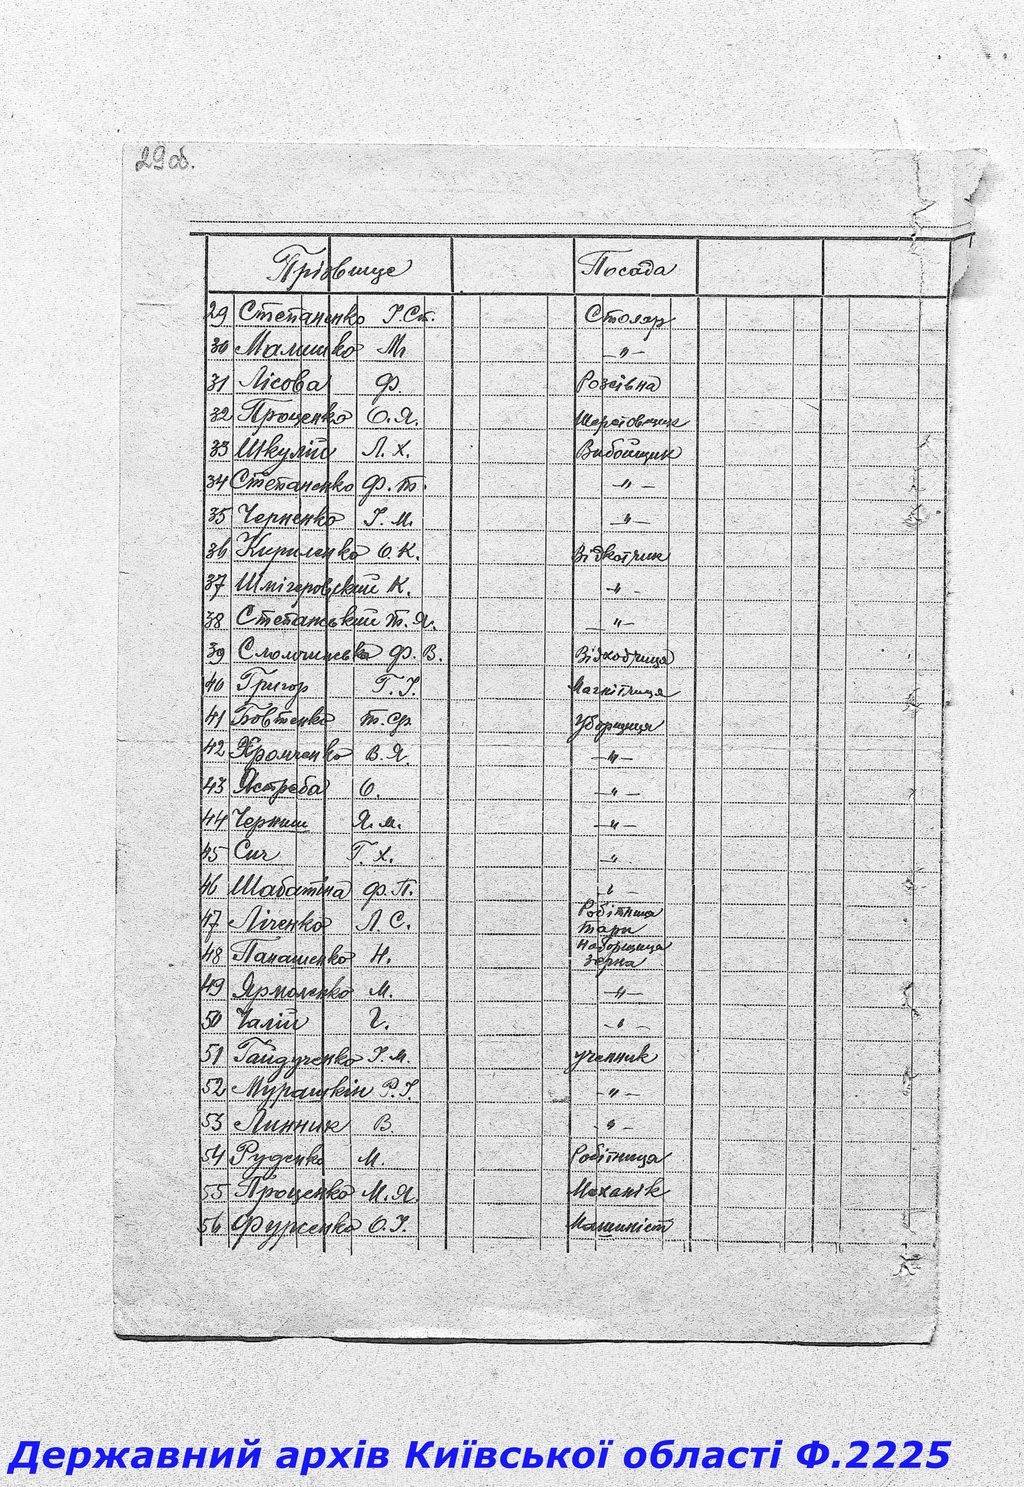 29 об.
Прізвище Посада
29 Степаненко І.Ст. Столяр
30 Малишко М. —"—
31 Лісова Ф Розсівна
32 Проценко О.Я. Шеретовщик
33 Шкулій Л.Х. Вибойщик
34 Степаненко Ф.Т. —"—
35 Черненко І.М. —"—
36 Кириленко О.К. Відкотчик
37 Шмігеровський К. —"—
38 Степанський Т.Я. —"—
39 Ф.В.
40 Григор Г.І. Магнітчиця
41 Бовтенко Уборщиця
42 Хромченко В.Я. —"—
43 Ястреба О. —"—
44 Черниш Я.М. —"—
45 Сич Г.Х. —"—
46 Шабатіна Ф.П. —"—
47 Ліченко Л.С. Робітниця тари
48 Панашенко Н. Наборщица зерна
49 Ярмоленко М. —"—
50 Чалій Г. —"—
51 Гайдученко І.М. ученик
52 Мурашкін Р.І. —"—
53 Линник В. —"—
54 Руденко М. Робітниця
55 Проценко М.Я. Механік
56 Фурсенко О.І. Машиніст
Державний архів Київської області Ф.2225